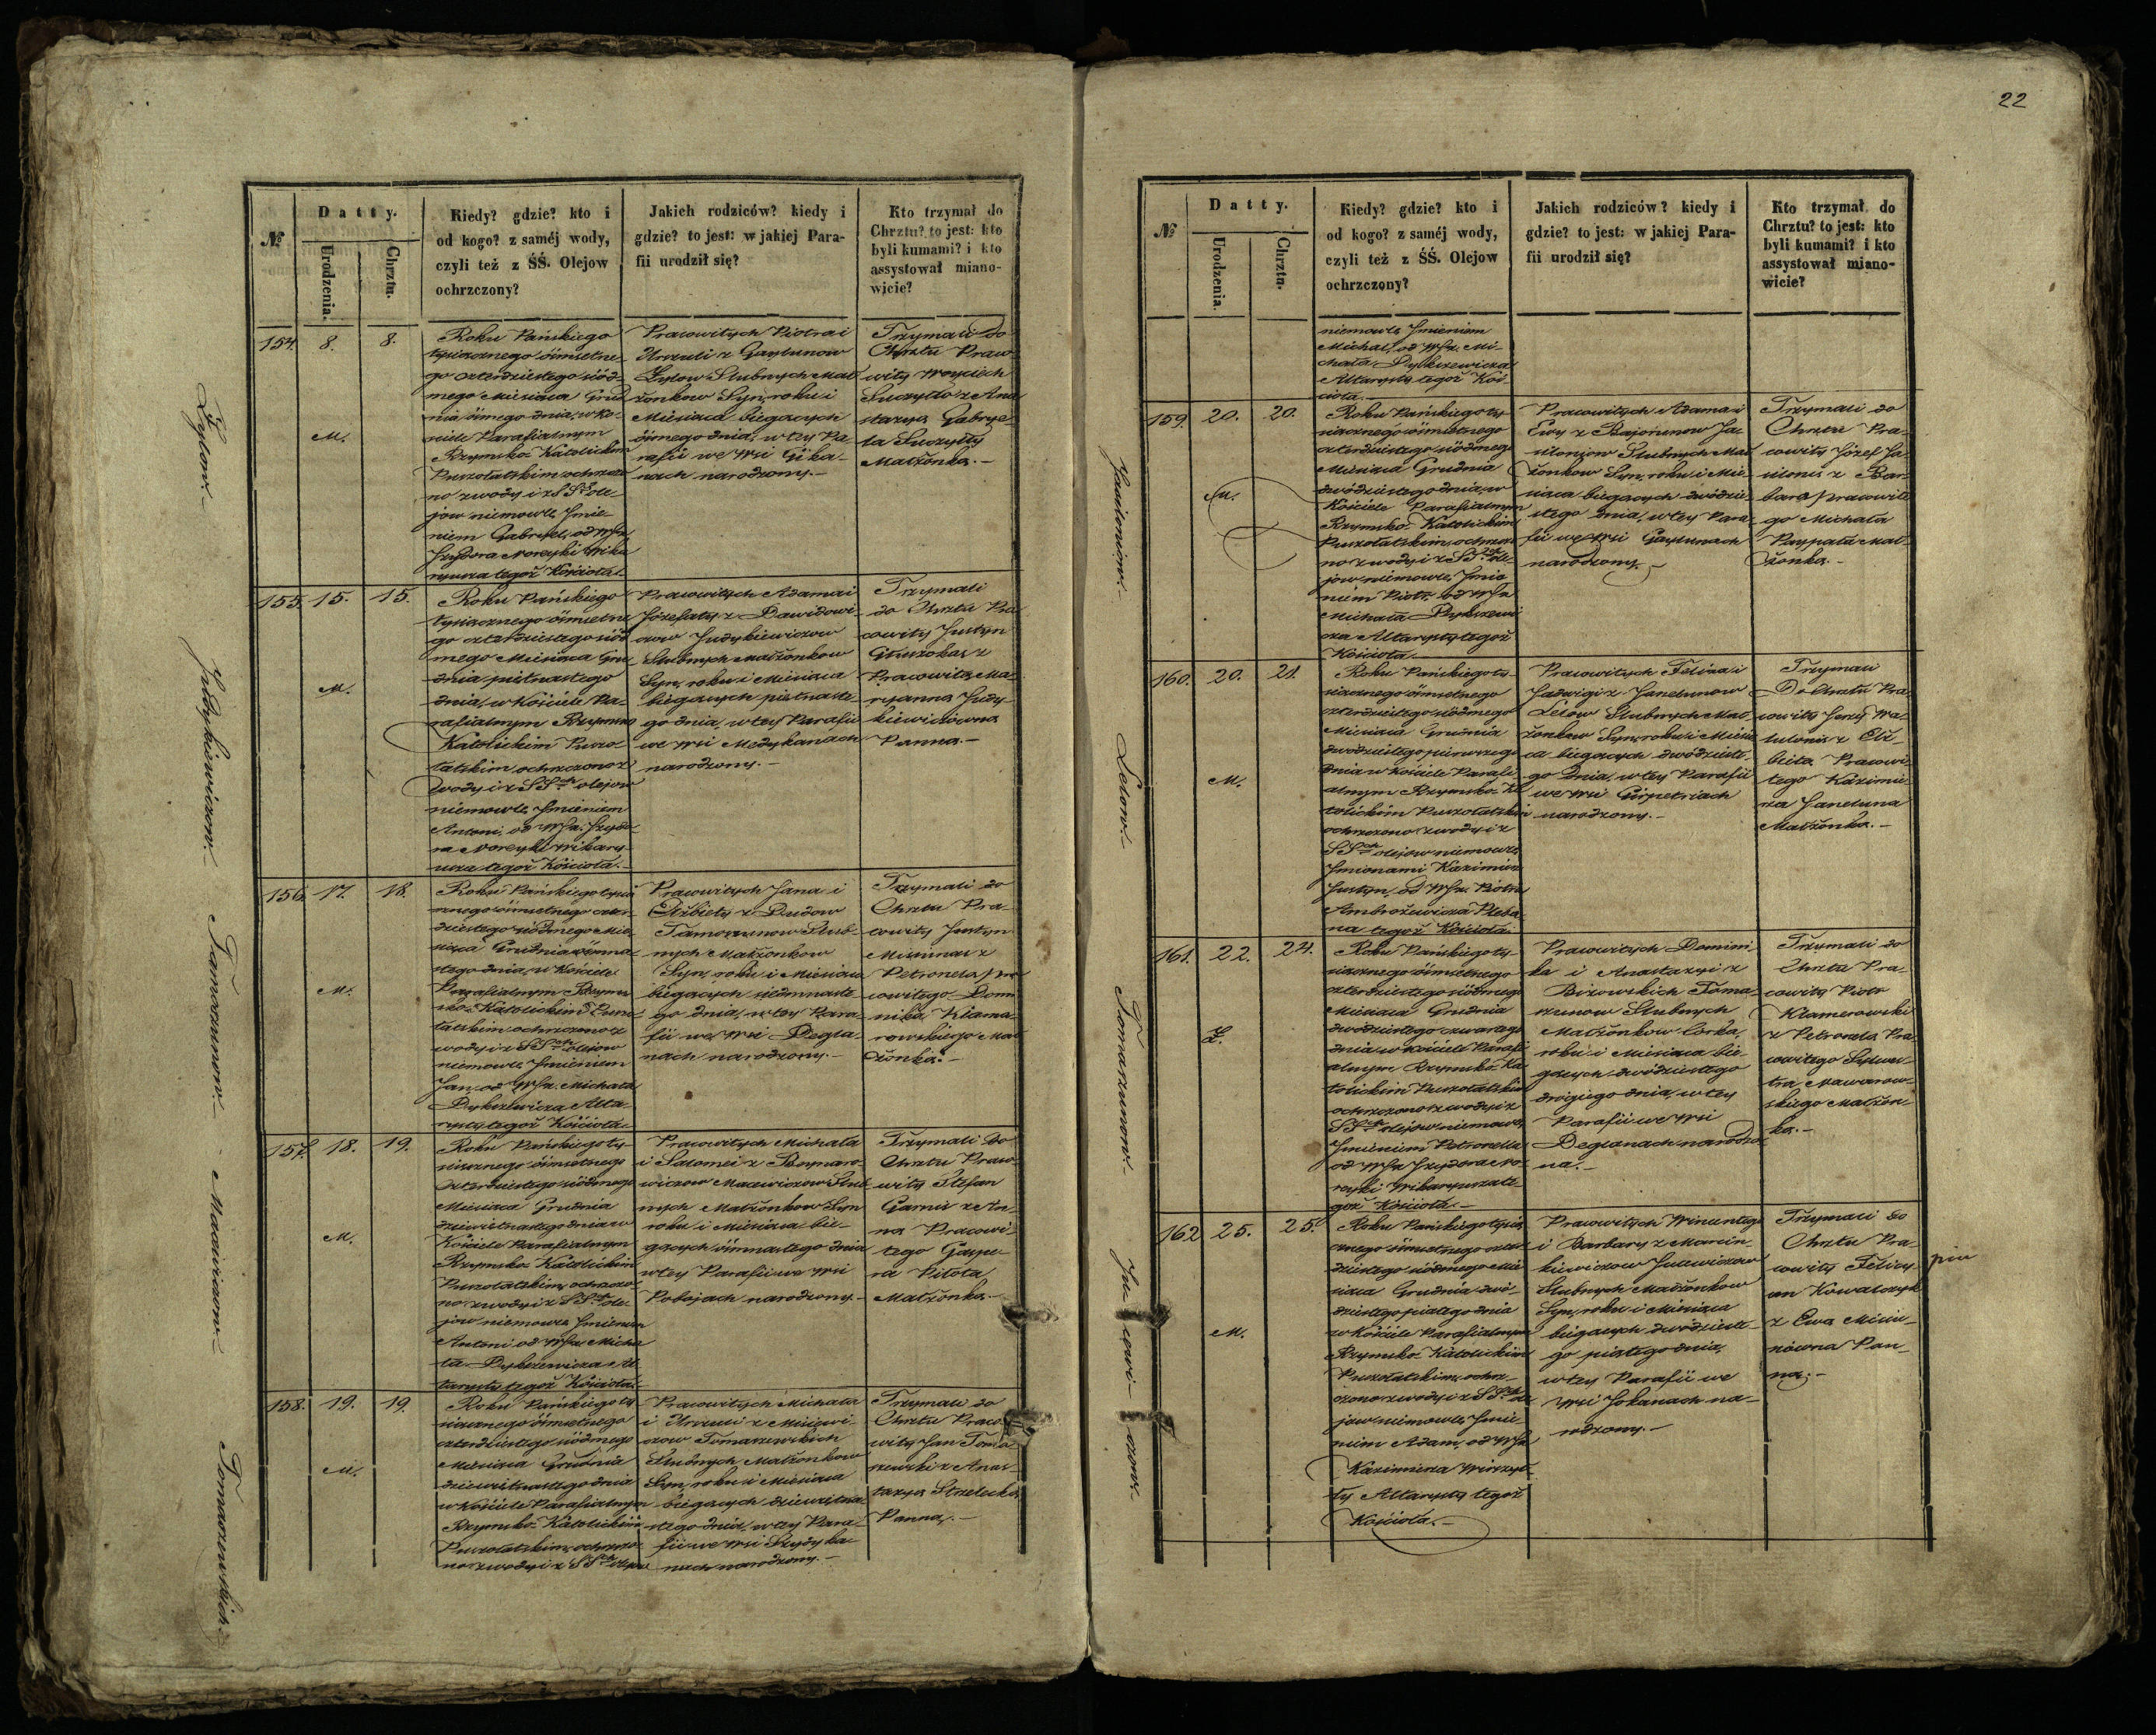 22
№
Datty.
Urodzenia.
Chrztu.
Kiedy? gdzie? kto i
od kogo? z saméj wody,
czyli też z ŚŚ. Olejow
ochrzczony?
Jakich rodziców? kiedy i
gdzie? to jest: w jakiej Para-
fii urodził się?
Kto trzymał do
Chrztu? to jest: kto
byli kumami? i kto
assystował miano-
wicie?
Zylow
154. 8. 8.
M.
Roku Pańskiego
tysiącznego ósmsetne-
go czterdziestego siód-
mego Miesiąca Grud
nia ósmego dnia, w Ko-
ściele Parafialnym
Rzymsko-Katolickim
ochrzczo
no z wody i z SS. ole-
jow niemowle Imie-
niem Gabryel, od WJX.
Izydora Noreyki Wika
ryusza tegoż Kościoła.
Pracowitych Piotra i
Urszuli z Gaylunow
Zylow Slubnych Mał
żonkow Syn, roku i
Miesiąca biegących
ósmego dnia, w tey Pa
rafii we wsi
nach narodzony.-
Trzymali do
Chrztu Praco
wity Woyciech
z Ana
stazyą Gabrye-
la
Małżonką.-
Judykiewiczow
155. 15. 15.
M.
Roku Pańskiego
tysiącznego ósmsetne
go czterdziestego siód
mego Miesiąca Gru
dnia piętnastego
dnia, w Kościele Pa-
rafialnym Rzymsko
Katolickim
ochrzczono z
wody i z SS. olejow
niemowle Imieniem
Antoni, od WJX. Izydo-
ra Noreyki Wikary-
usza tegoż Kościoła.-
Pracowitych Adama i
Józefaty z Dawidowi-
czow Judykiewiczow
Slubnych Małżonkow
Syn, roku i Miesiąca
biegących piętnaste
go dnia, w tey Parafii
we wsi Medykanach
narodzony.-
Trzymali
do Chrztu Pra
cowity Justyn
z
Pracowitą Ma-
ryanną Judy-
kiewiczówną
Panną.-
Tamoszunow
156. 17. 18.
M.
Roku Pańskiego tysią
cznego ósmsetnego czter-
dziestego siódmego Mie-
siąca Grudnia ósmna-
stego dnia, w Kościele
Parafialnym Rzyms
ko-Katolickim
ochrzczono z
wody i z SS. olejow
niemowle Imieniem
Jan, od WJX. Michała
Dyrkszewicza Alta-
rysty tegoż Kościoła.
Pracowitych Jana i
Elżbiety z Dudow
Tamoszunow Slub-
nych Małżonkow
Syn, roku i Miesiąca
biegących siedmnaste
go dnia, w tey Para-
fii we wsi Degla-
nach narodzony.-
Trzymali do
Chrztu Pra-
cowity Justyn
z
Petronelą pra
cowitego Domi
nika Klama-
rowskiego Mał
żonką.-
Macewiczow
157. 18. 19.
M.
Roku Pańskiego ty-
siącznego ósmsetnego
czterdziestego siódmego
Miesiąca Grudnia
dziewiętnastego dnia w
Kościele Parafialnym
Rzymsko-Katolickim
ochrzczo-
no z wody i z SS. ole-
jow niemowle Imieniem
Antoni od WJX. Micha
ła Dyrkszewicza Al-
tarysty tegoż Kościoła.
Pracowitych Michała
i Salomei z Szymaro-
wiczow Macewiczow Slub
nych Małżonkow Syn
roku i Miesiąca bie-
gących ósmnastego dnia
w tey Parafii we wsi
Pobojach narodzony.-
Trzymali do
Chrztu Praco-
wity Stefan
Garnis z An-
ną Pracowi-
tego Gaspe-
ra Pilota
Małżonką.-
Tomaszewskich
158. 19. 19.
M.
Roku Pańskiego ty
siącznego ósmsetnego
czterdziestego siódmego
Miesiąca Grudnia
dziewiętnastego dnia
w Kościele Parafialnym
Rzymsko-Katolickim
ochrzczo-
no z wody i z SS. olejow
Pracowitych Michała
i Urszuli z
Tomaszewskich
Slubnych Małżonkow
Syn, roku i Miesiąca
biegących dziewiętna-
stego dnia, w tey Para-
fii we wsi
nach narodzony.-
Trzymali do
Chrztu Praco-
wity Jan Toma
szewski z Anas-
tazyą Strzelecką
Panną.-
№
Datty.
Urodzenia.
Chrztu.
Kiedy? gdzie? kto i
od kogo? z saméj wody,
czyli też z ŚŚ. Olejow
ochrzczony?
Jakich rodziców? kiedy i
gdzie? to jest: w jakiej Para-
fii urodził się?
Kto trzymał do
Chrztu? to jest: kto
byli kumami? i kto
assystował miano-
wicie?
niemowle Imieniem
Michał, od WJX. Mi-
chała Dyrkszewicza
Altarysty tegoż Koś-
cioła.-
159. 20. 20.
M.
Roku Pańskiego ty-
siącznego ósmsetnego
czterdziestego siódmego
Miesiąca Grudnia
dwódziestego dnia, w
Kościele Parafialnym
Rzymsko-Katolickim
ochrzczo
no z wody i z SS. ole-
jow niemowle Imie
niem Piotr, od WJX.
Michała Dyrkszewi
cza Altarysty tegoż
Kościoła.
Pracowitych Adama i
Ewy z Bajorunow
Slubnych Mał
żonkow Syn, roku i Mie
siąca biegących dwódzie-
stego dnia, w tey Para-
fii we wsi Gaylunach
narodzony.
Trzymali do
Chrztu Pra-
cowity Józef
z Bar-
barą pracowite
go Michała
Mał-
żonką.-
Lesow
160. 20. 21.
M.
Roku Pańskiego ty-
siącznego ósmsetnego
czterdziestego siódmego
Miesiąca Grudnia
dwódziestego pierwszego
dnia w Kościele Parafi-
alnym Rzymsko-Ka
tolickim
ochrzczono z wody i z
SS. olejow niemowle
Imionami Kazimierz
Justyn, od WJX. Piotra
Ambrożewicza Pleba-
na tegoż Kościoła.
Pracowitych Felixa i
Jadwigi z Janelunow
Lesow Slubnych Mał-
żonkow Syn, roku i Miesią
ca biegących dwódzieste-
go dnia, w tey Parafii
we wsi
narodzony.-
Trzymali
Do Chrztu Pra-
cowity Jerzy
z Elż-
bietą Pracowi-
tego Kazimie-
rza Janeluna
Małżonką.-
Tomaszunow
161. 22. 24.
Ż.
Roku Pańskiego ty-
siącznego ósmsetnego
czterdziestego siódmego
Miesiąca Grudnia
dwódziestego czwartego
dnia, w Kościele Parafi
alnym Rzymsko-Ka-
tolickim
ochrzczono z wody i z
SS. olejow niemowle
Imieniem Petronella
od WJX Izydora No-
reyki Wikaryusza te-
goż Kościoła.-
Pracowitych Domini-
ka i Anastazyi z
Toma-
szunow Slubnych
Małżonkow Córka,
roku i Miesiąca bie-
gących dwódziestego
drugiego dnia, w tey
Parafii we wsi
Deglanach narodzo
na.-
Trzymali do
Chrztu Pra-
cowity Piotr
Klamerowski
z Petronelą Pra
cowitego Sylwes-
tra
skiego Małżon-
ką.-
162 25. 25.
M.
Roku Pańskiego tysią
cznego ósmsetnego czter-
dziestego siódmego Mie-
siąca Grudnia dwó-
dziestego piątego dnia
w Kościele Parafialnym
Rzymsko-Katolickim
ochrz-
czono z wody i z SS. ole
jow niemowle Imie-
niem Adam, od WJX
Kazimierza
Altarysty tegoż
Kościoła.-
Pracowitych Wincentego
i Barbary z Marcin-
kiewiczow
Slubnych Małżonkow
Syn, roku i Miesiąca
biegących dwódzieste-
go piątego dnia,
w tey Parafii we
wsi Jokanach na-
rodzony.-
Trzymali do
Chrztu Pra-
cowity Felicy-
an Kowalczyk
z Ewą
Pan-
ną.-